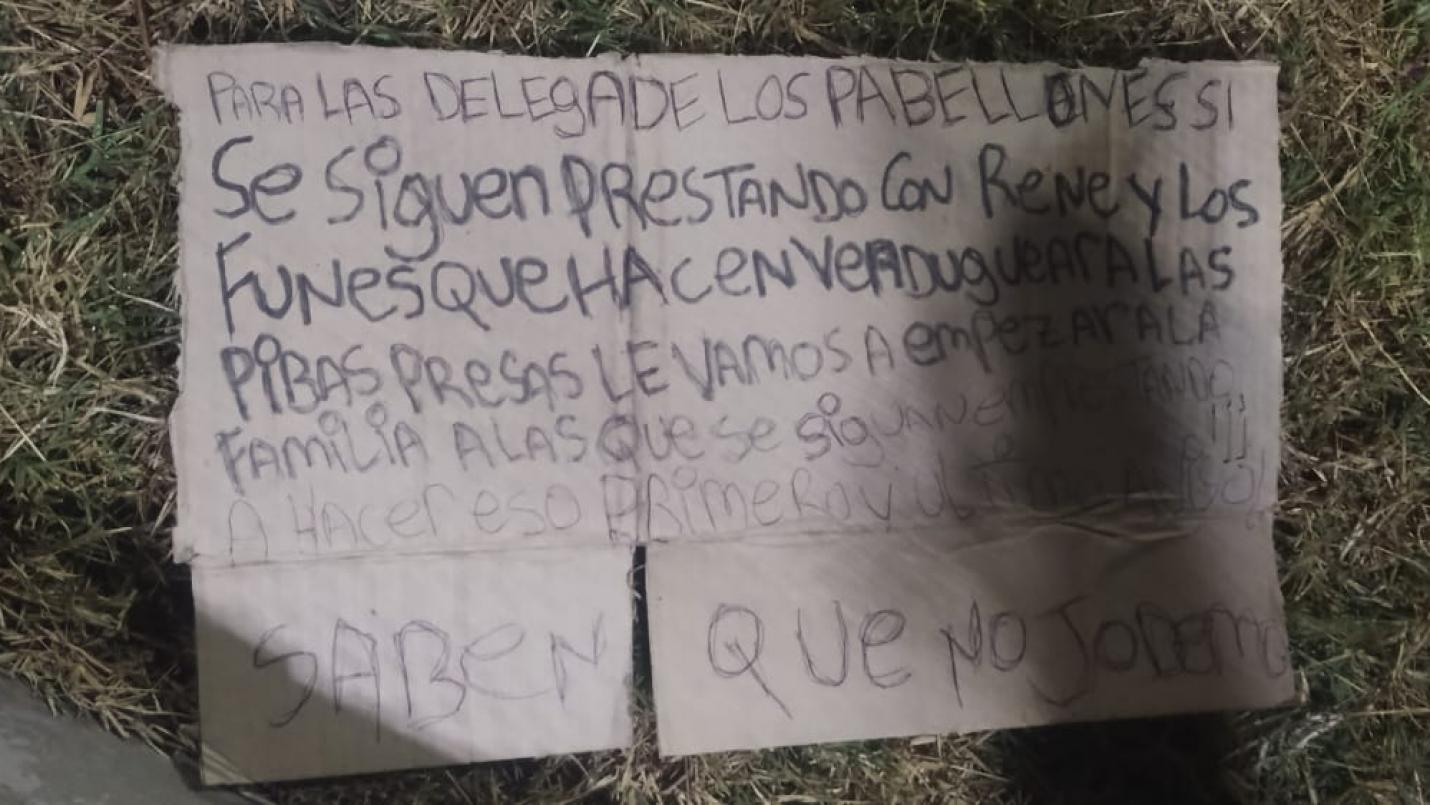 PARA LAS DELEGADE LOS PABELLONES SI
Se Siguen PRESTANDO CON RENE Y LOS
FUNES QUE HACEN VERDUGUEAR A LAS
PIBAS PRESAS LE VAMOS A EMPEZAR A LA
FAMILIA A LAS QUE SE SIGUAN EMPRESTANDO
A HACER ESO PRIMERO Y ULTIMO AVISO!!!
SABEN QUE NO JODEMO